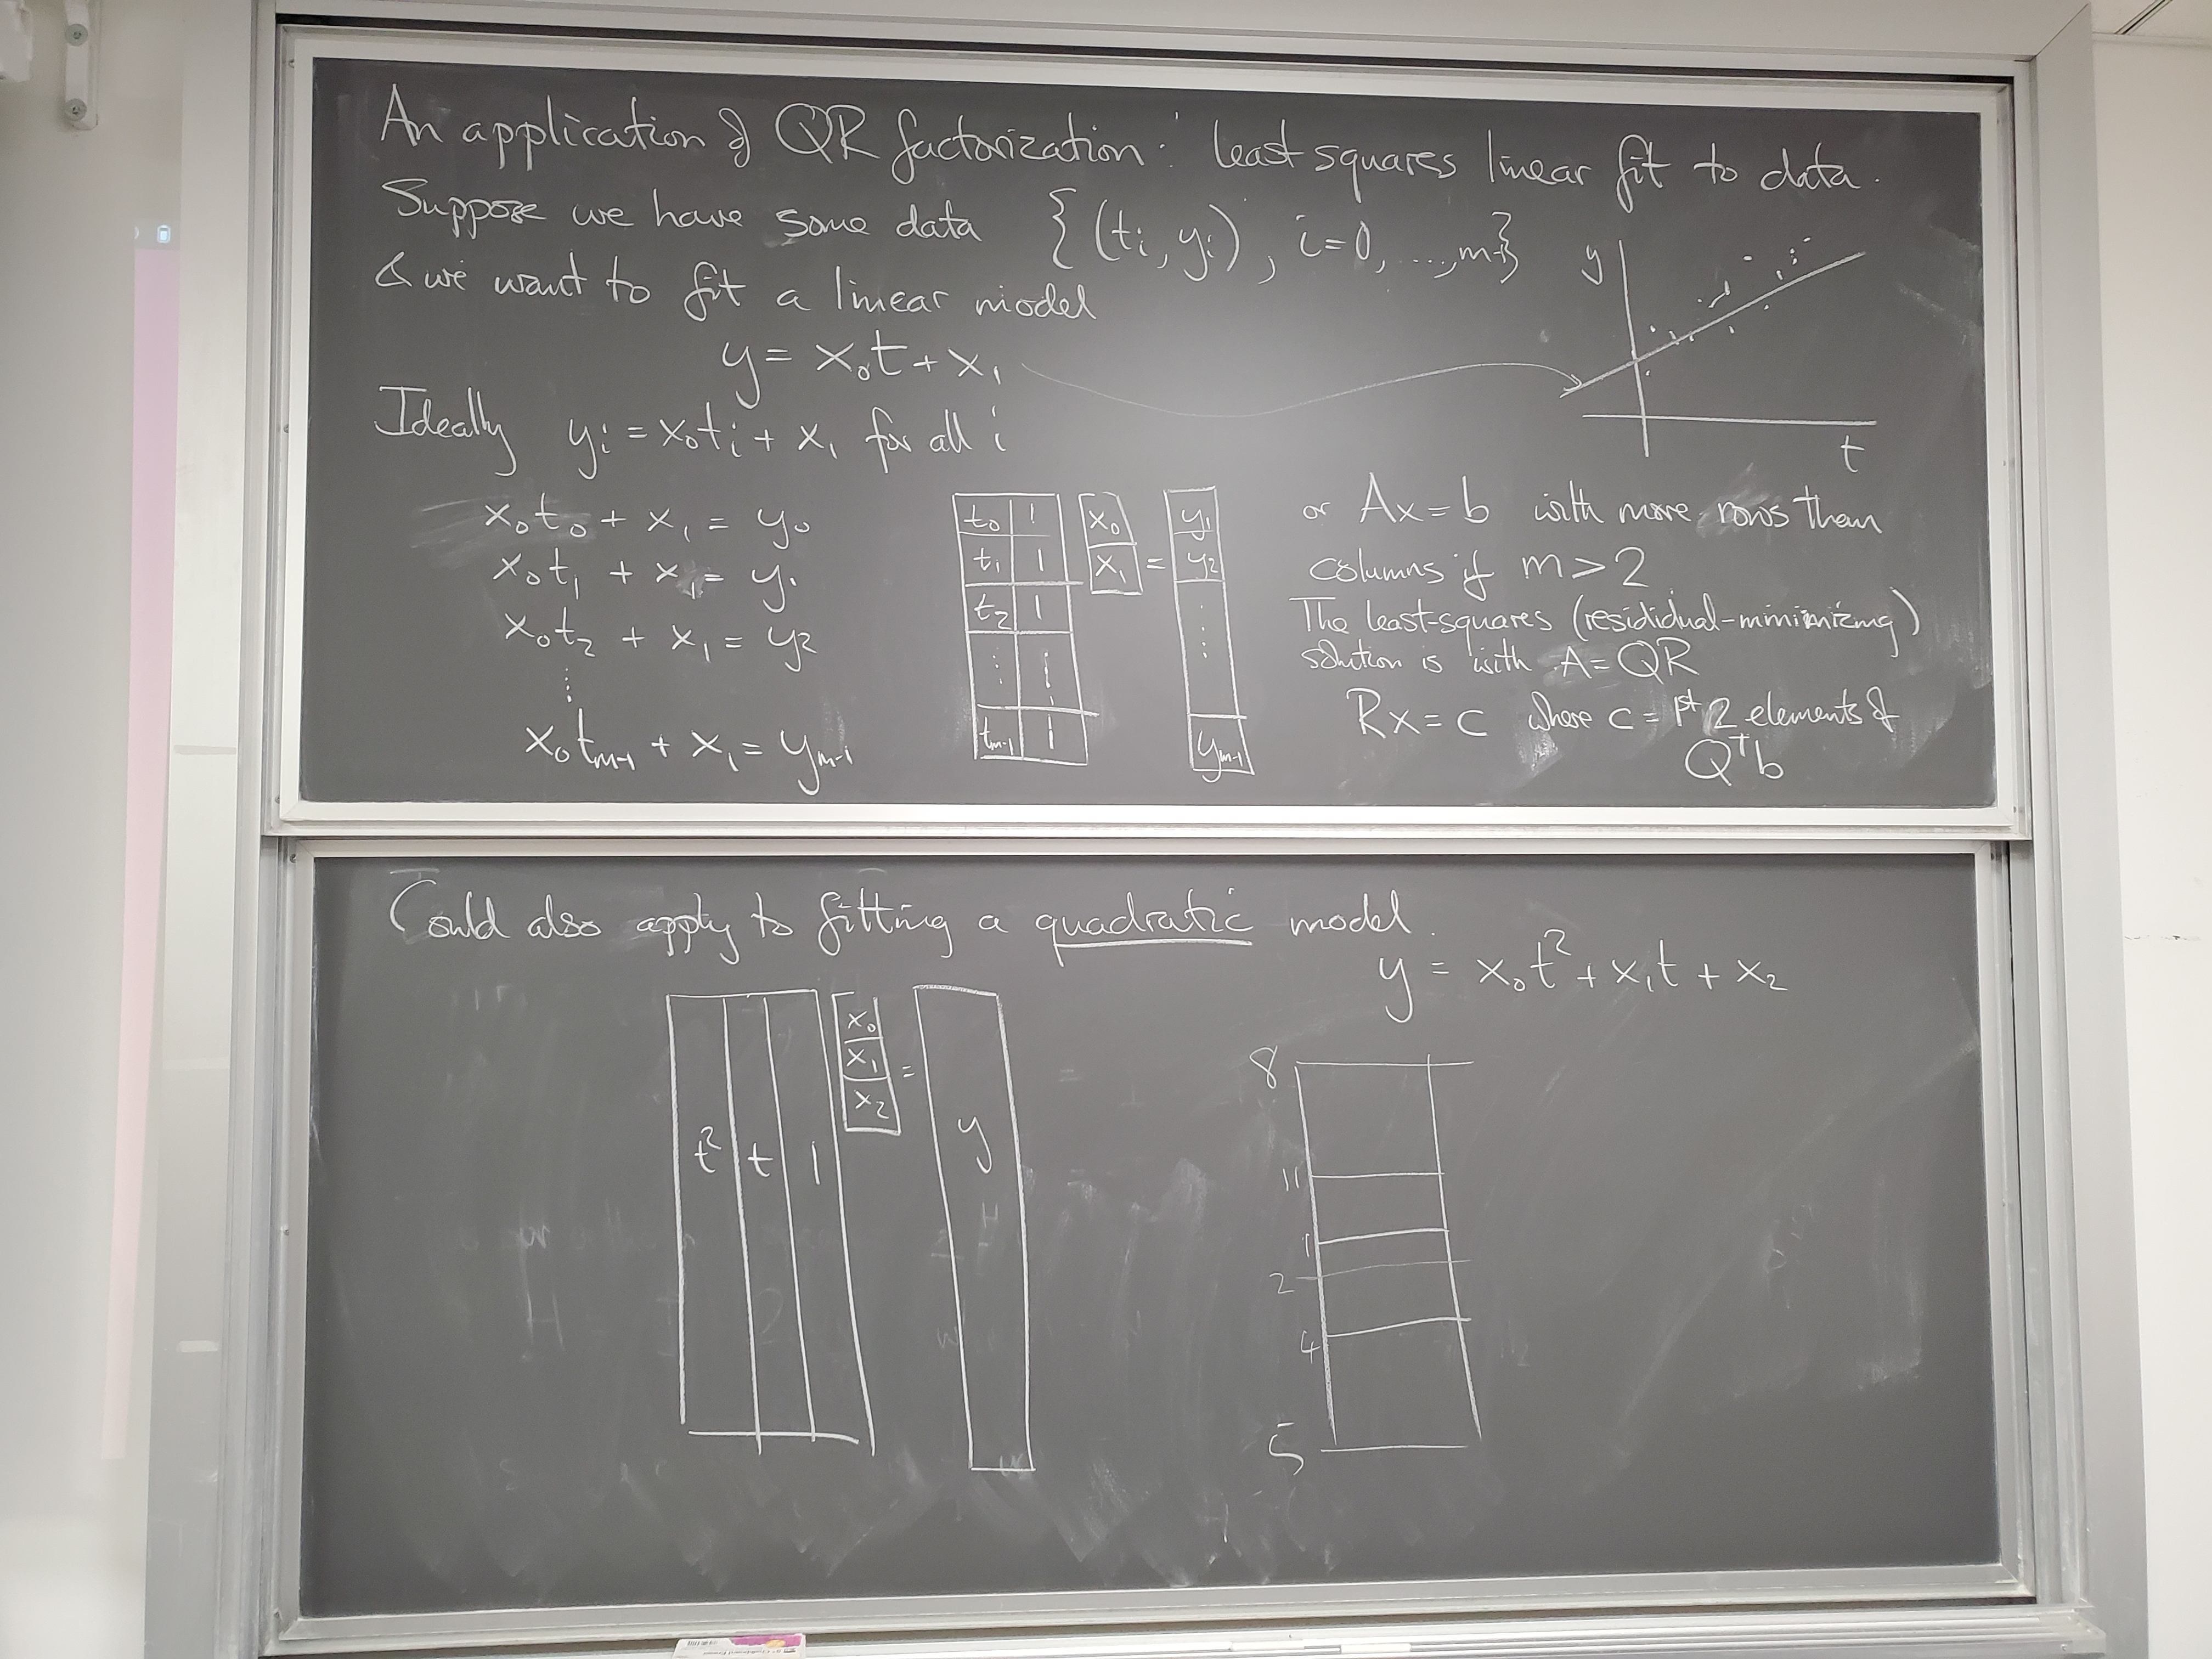 An application of QR factorization: least squares linear fit to data.
Suppose we have some data { (ti, yi), i=0, ..., m-1}
& we want to fit a linear model
y = x₀t + x₁
y
t
Ideally yi = x₀ti + x₁ for all i
x₀t₀ + x₁ = y₀
x₀t₁ + x₁ = y₁
x₀t₂ + x₁ = y₂
⋮
x₀tm-1 + x₁ = ym-1
t₀ 1 x₀ y₁
t₁ 1 x₁ = y₂
t₂ 1 ⋮
⋮ ⋮
tm-1 1 ym-1
or Ax = b with more rows than
columns if m > 2
The least-squares (resididual-minimizing)
solution is with A = QR
Rx = c where c = 1st 2 elements of
Qᵀb
Could also apply to fitting a quadratic model.
y = x₀t² + x₁t + x₂
t² t 1
x₀
x₁
x₂
=
y
8
11
1
2
4
5